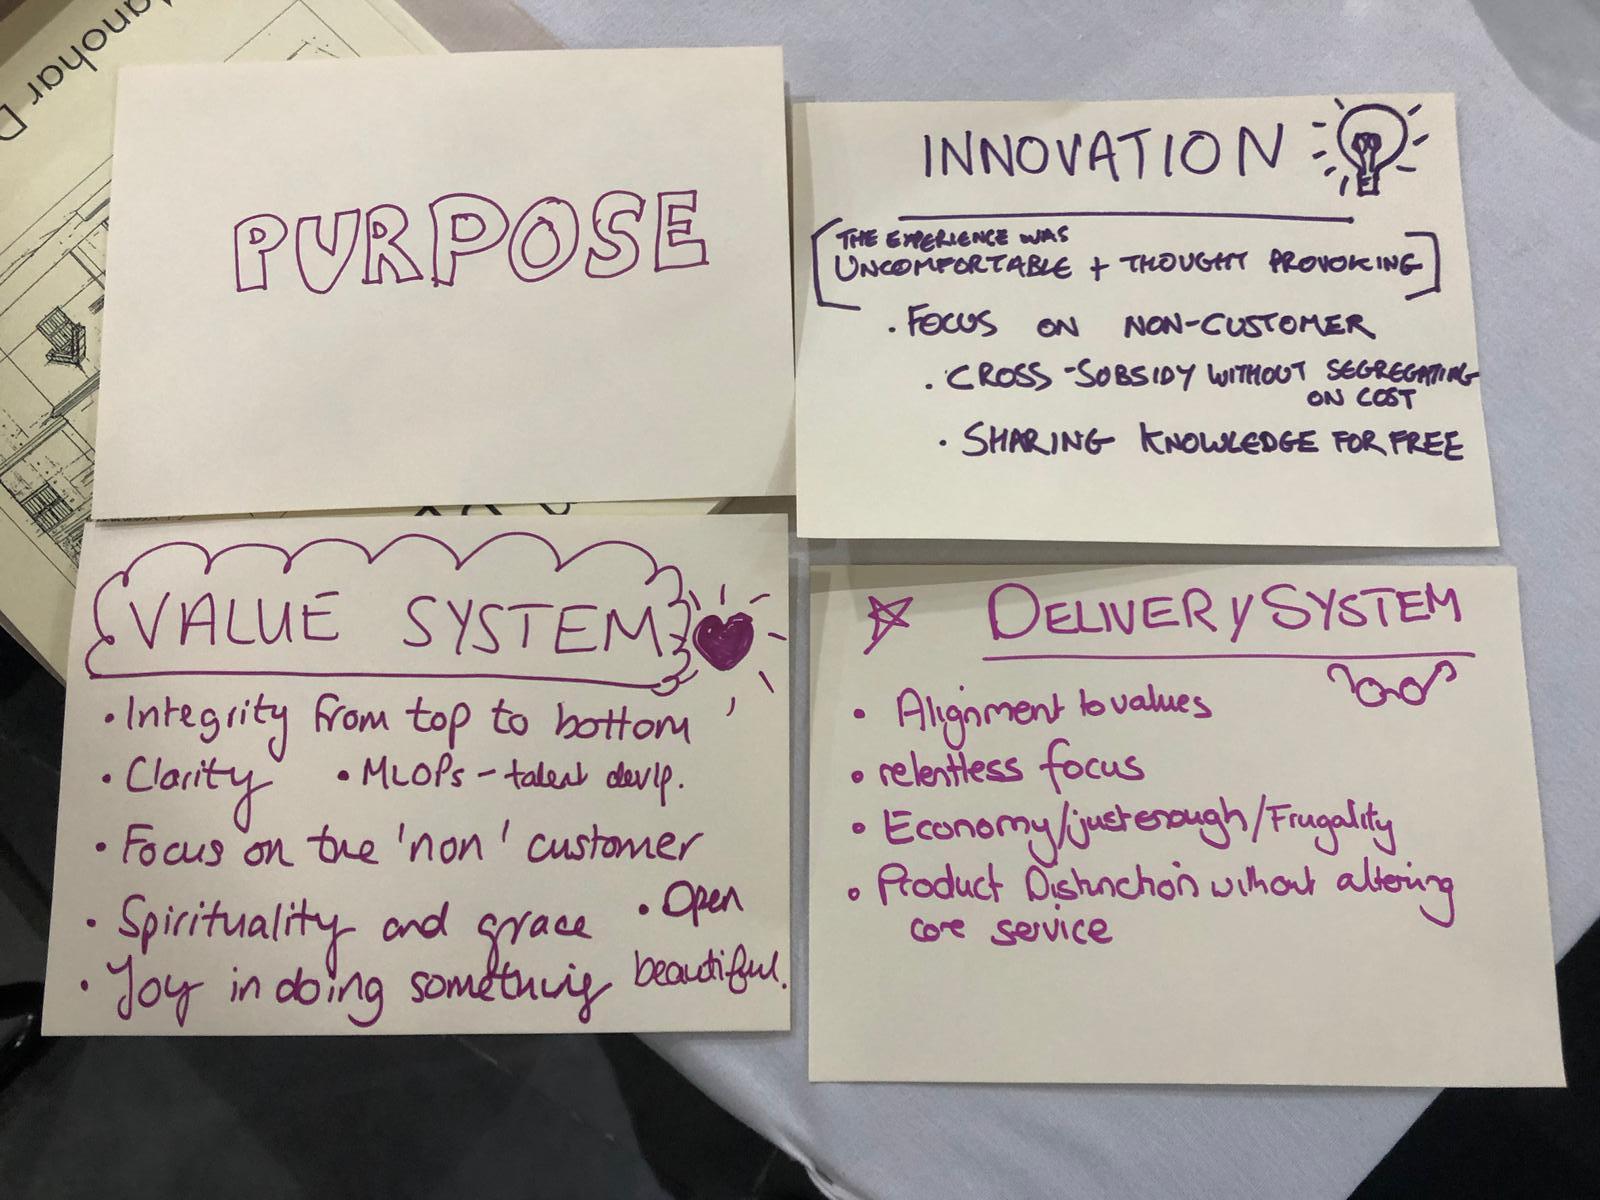 Manohar D
PURPOSE
INNOVATION
[THE EXPERIENCE WAS
UNCOMFORTABLE + THOUGHT PROVOKING]
• FOCUS ON NON-CUSTOMER
• CROSS-SUBSIDY WITHOUT SEGREGATING
ON COST
• SHARING KNOWLEDGE FOR FREE
VALUE SYSTEM
• Integrity from top to bottom
• Clarity • MLOPs - talent devlp.
• Focus on the 'non' customer
• Spirituality and grace • Open
• Joy in doing something beautiful.
DELIVERY SYSTEM
• Alignment to values
• relentless focus
• Economy/just enough/Frugality
• Product Distinction without altering
core service